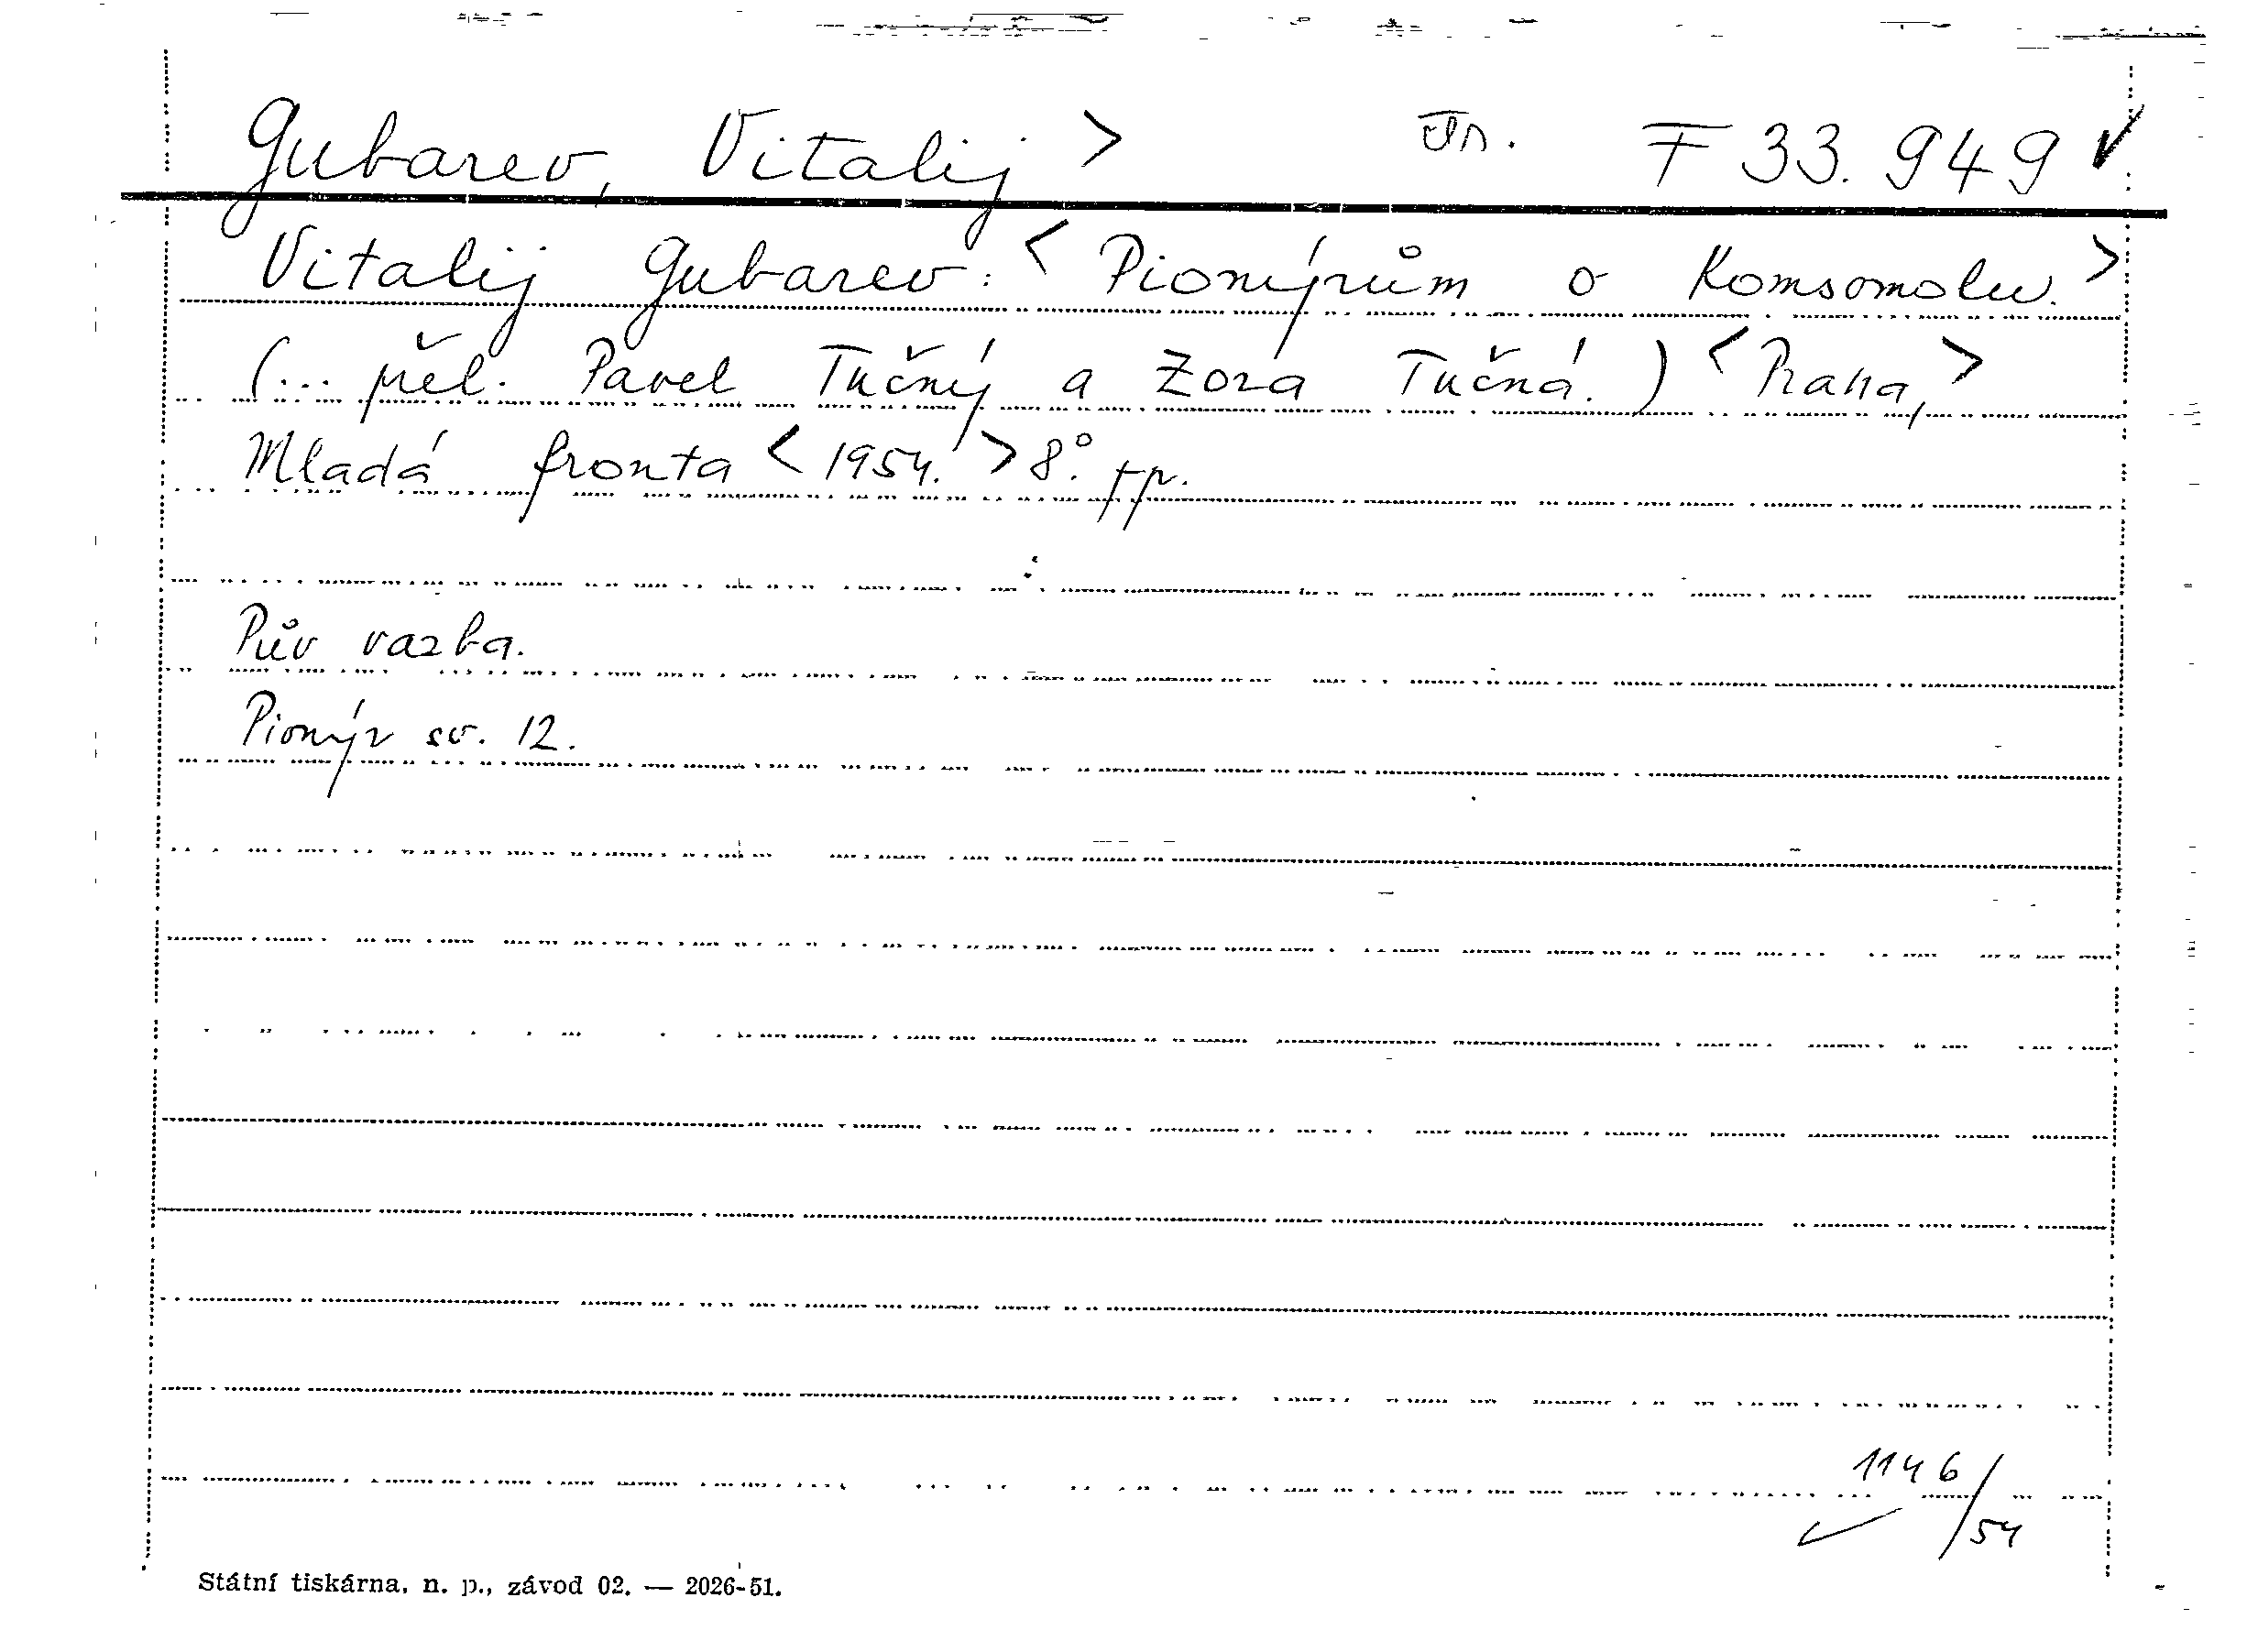 Gubarev, Vitalij > F 33.949 ✓
Vitalij Gubarev: < Pionýrům o Komsomolu. >
(... přel. Pavel Tučný a Zora Tučná.) < Praha, >
Mladá fronta < 1954. > 8°.
Pův vazba.
Pionýr sv. 12.
1146/54
Státní tiskárna, n. p., závod 02. — 2026-51.